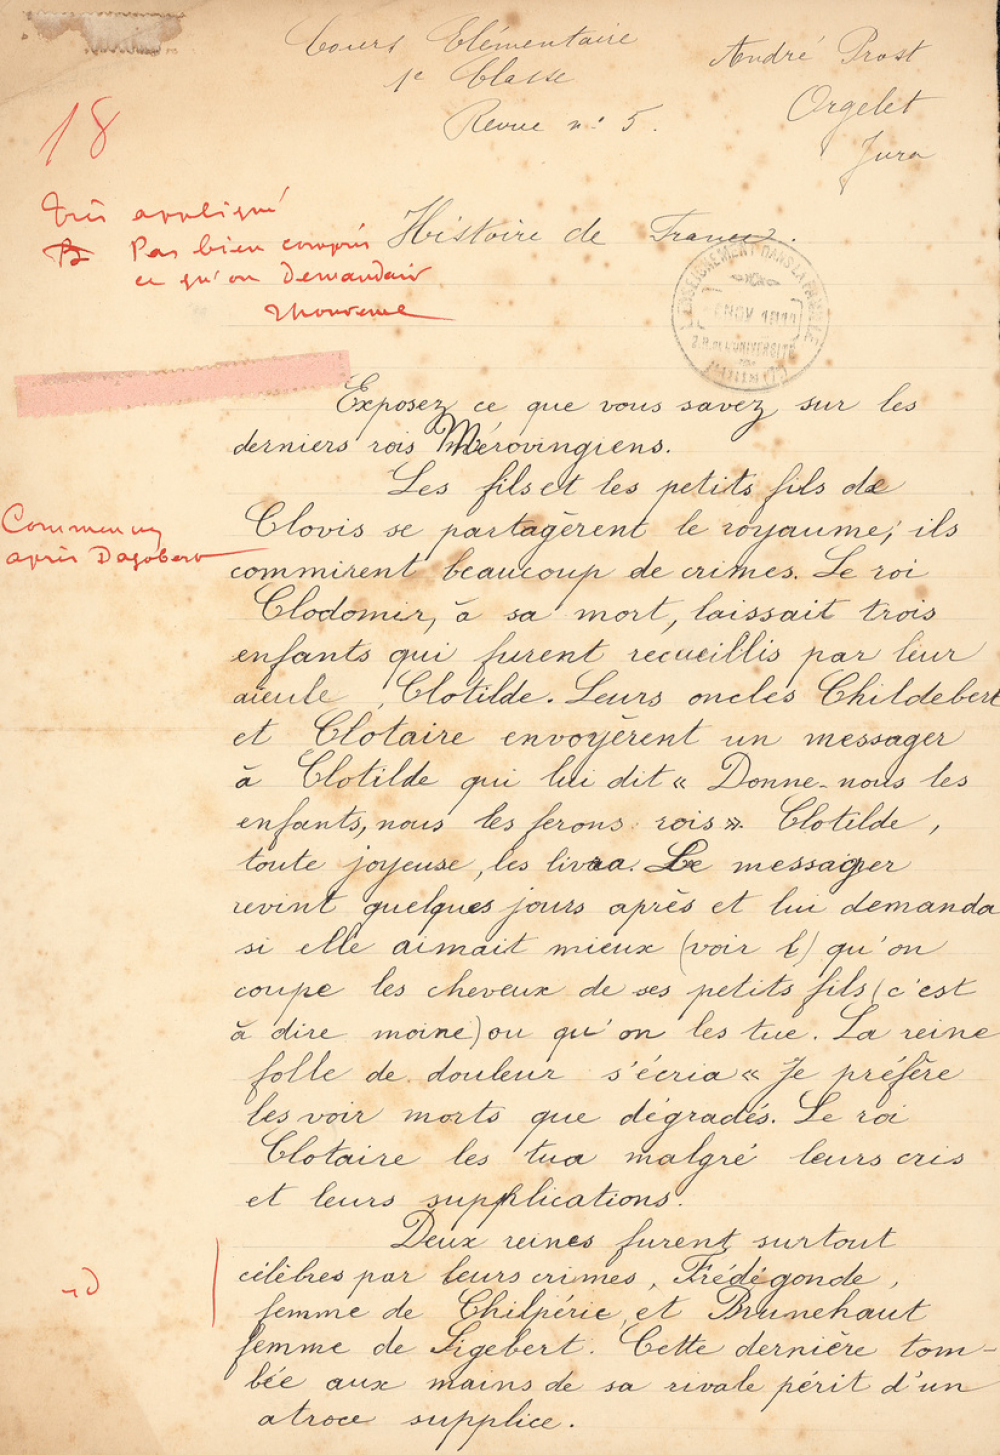 Cours Elémentaire
1e Classe
Revue n: 5.
André Prost
Orgelet
Jura
18
Très appliqué
B Pas bien compris
ce qu'on demandait
Histoire de France.
L'ENSEIGNEMENT DANS LA FAMILLE
Exposez ce que vous savez sur les
derniers rois Mérovingiens.
Les fils et les petits fils de
Clovis se partagèrent le royaume; ils
Commencez
après Dagobert
commirent beaucoup de crimes. Le roi
Clodomir, à sa mort, laissait trois
enfants qui furent recueillis par leur
aïeule, Clotilde. Leurs oncles Childebert
et Clotaire envoyèrent un messager
à Clotilde qui lui dit « Donne-nous les
enfants, nous les ferons rois ». Clotilde,
toute joyeuse, les livra. Le messager
revint quelques jours après et lui demanda
si elle aimait mieux (voir l) qu'on
coupe les cheveux de ses petits fils (c'est
à dire moine) ou qu'on les tue. La reine
folle de douleur s'écria « Je préfère
les voir morts que dégradés. Le roi
Clotaire les tua malgré leurs cris
et leurs supplications.
Deux reines furent surtout
célèbres par leurs crimes, Frédégonde,
femme de Chilpéric, et Brunehaut
femme de Sigebert. Cette dernière tom-
bée aux mains de sa rivale périt d'un
atroce supplice.